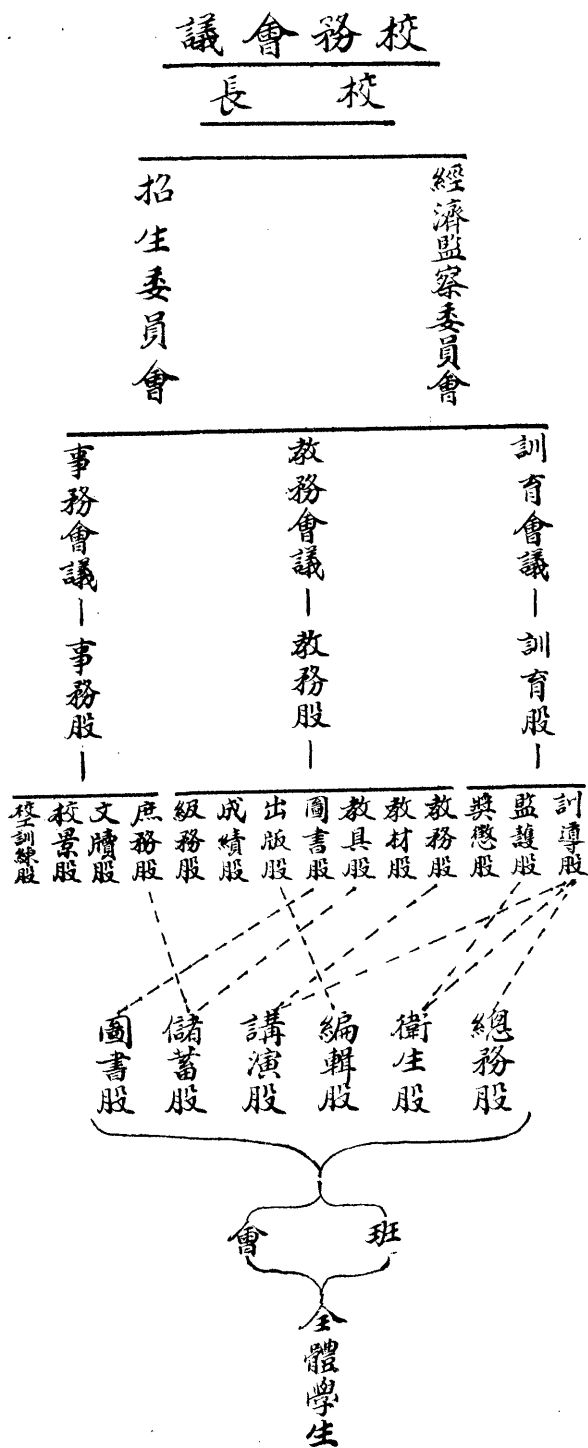 校務會議
校長
經濟監察委員會
招生委員會
訓育會議
教務會議
事務會議
訓育股
教務股
事務股
訓導股
監護股
獎懲股
教務股
教材股
教具股
圖書股
出版股
成績股
級務股
庶務股
文牘股
校景股
訓練股
總務股
衛生股
編輯股
講演股
儲蓄股
圖書股
班會
全體學生